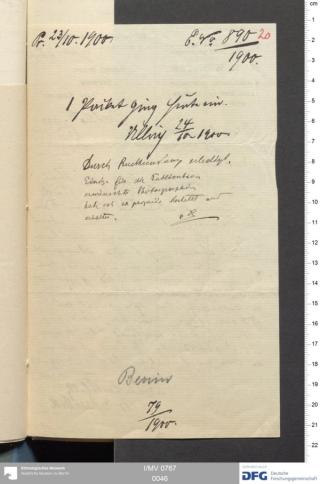 Pr. 23/10. 1900. E. No 890 20
1900.
1 Packet ging heute ein.
24/10 1900
Durch Rücksendung erledigt.
für die Publication
gewünschte Photographien
habe ich
erhalten.
Benin
79/1900.
Ethnologisches Museum
Staatliche Museen zu Berlin
I/MV 0767
0046
gefördert durch
DFG Deutsche
Forschungsgemeinschaft
cm
1
2
3
4
5
6
7
8
9
10
11
12
13
14
15
16
17
18
19
20
21
22